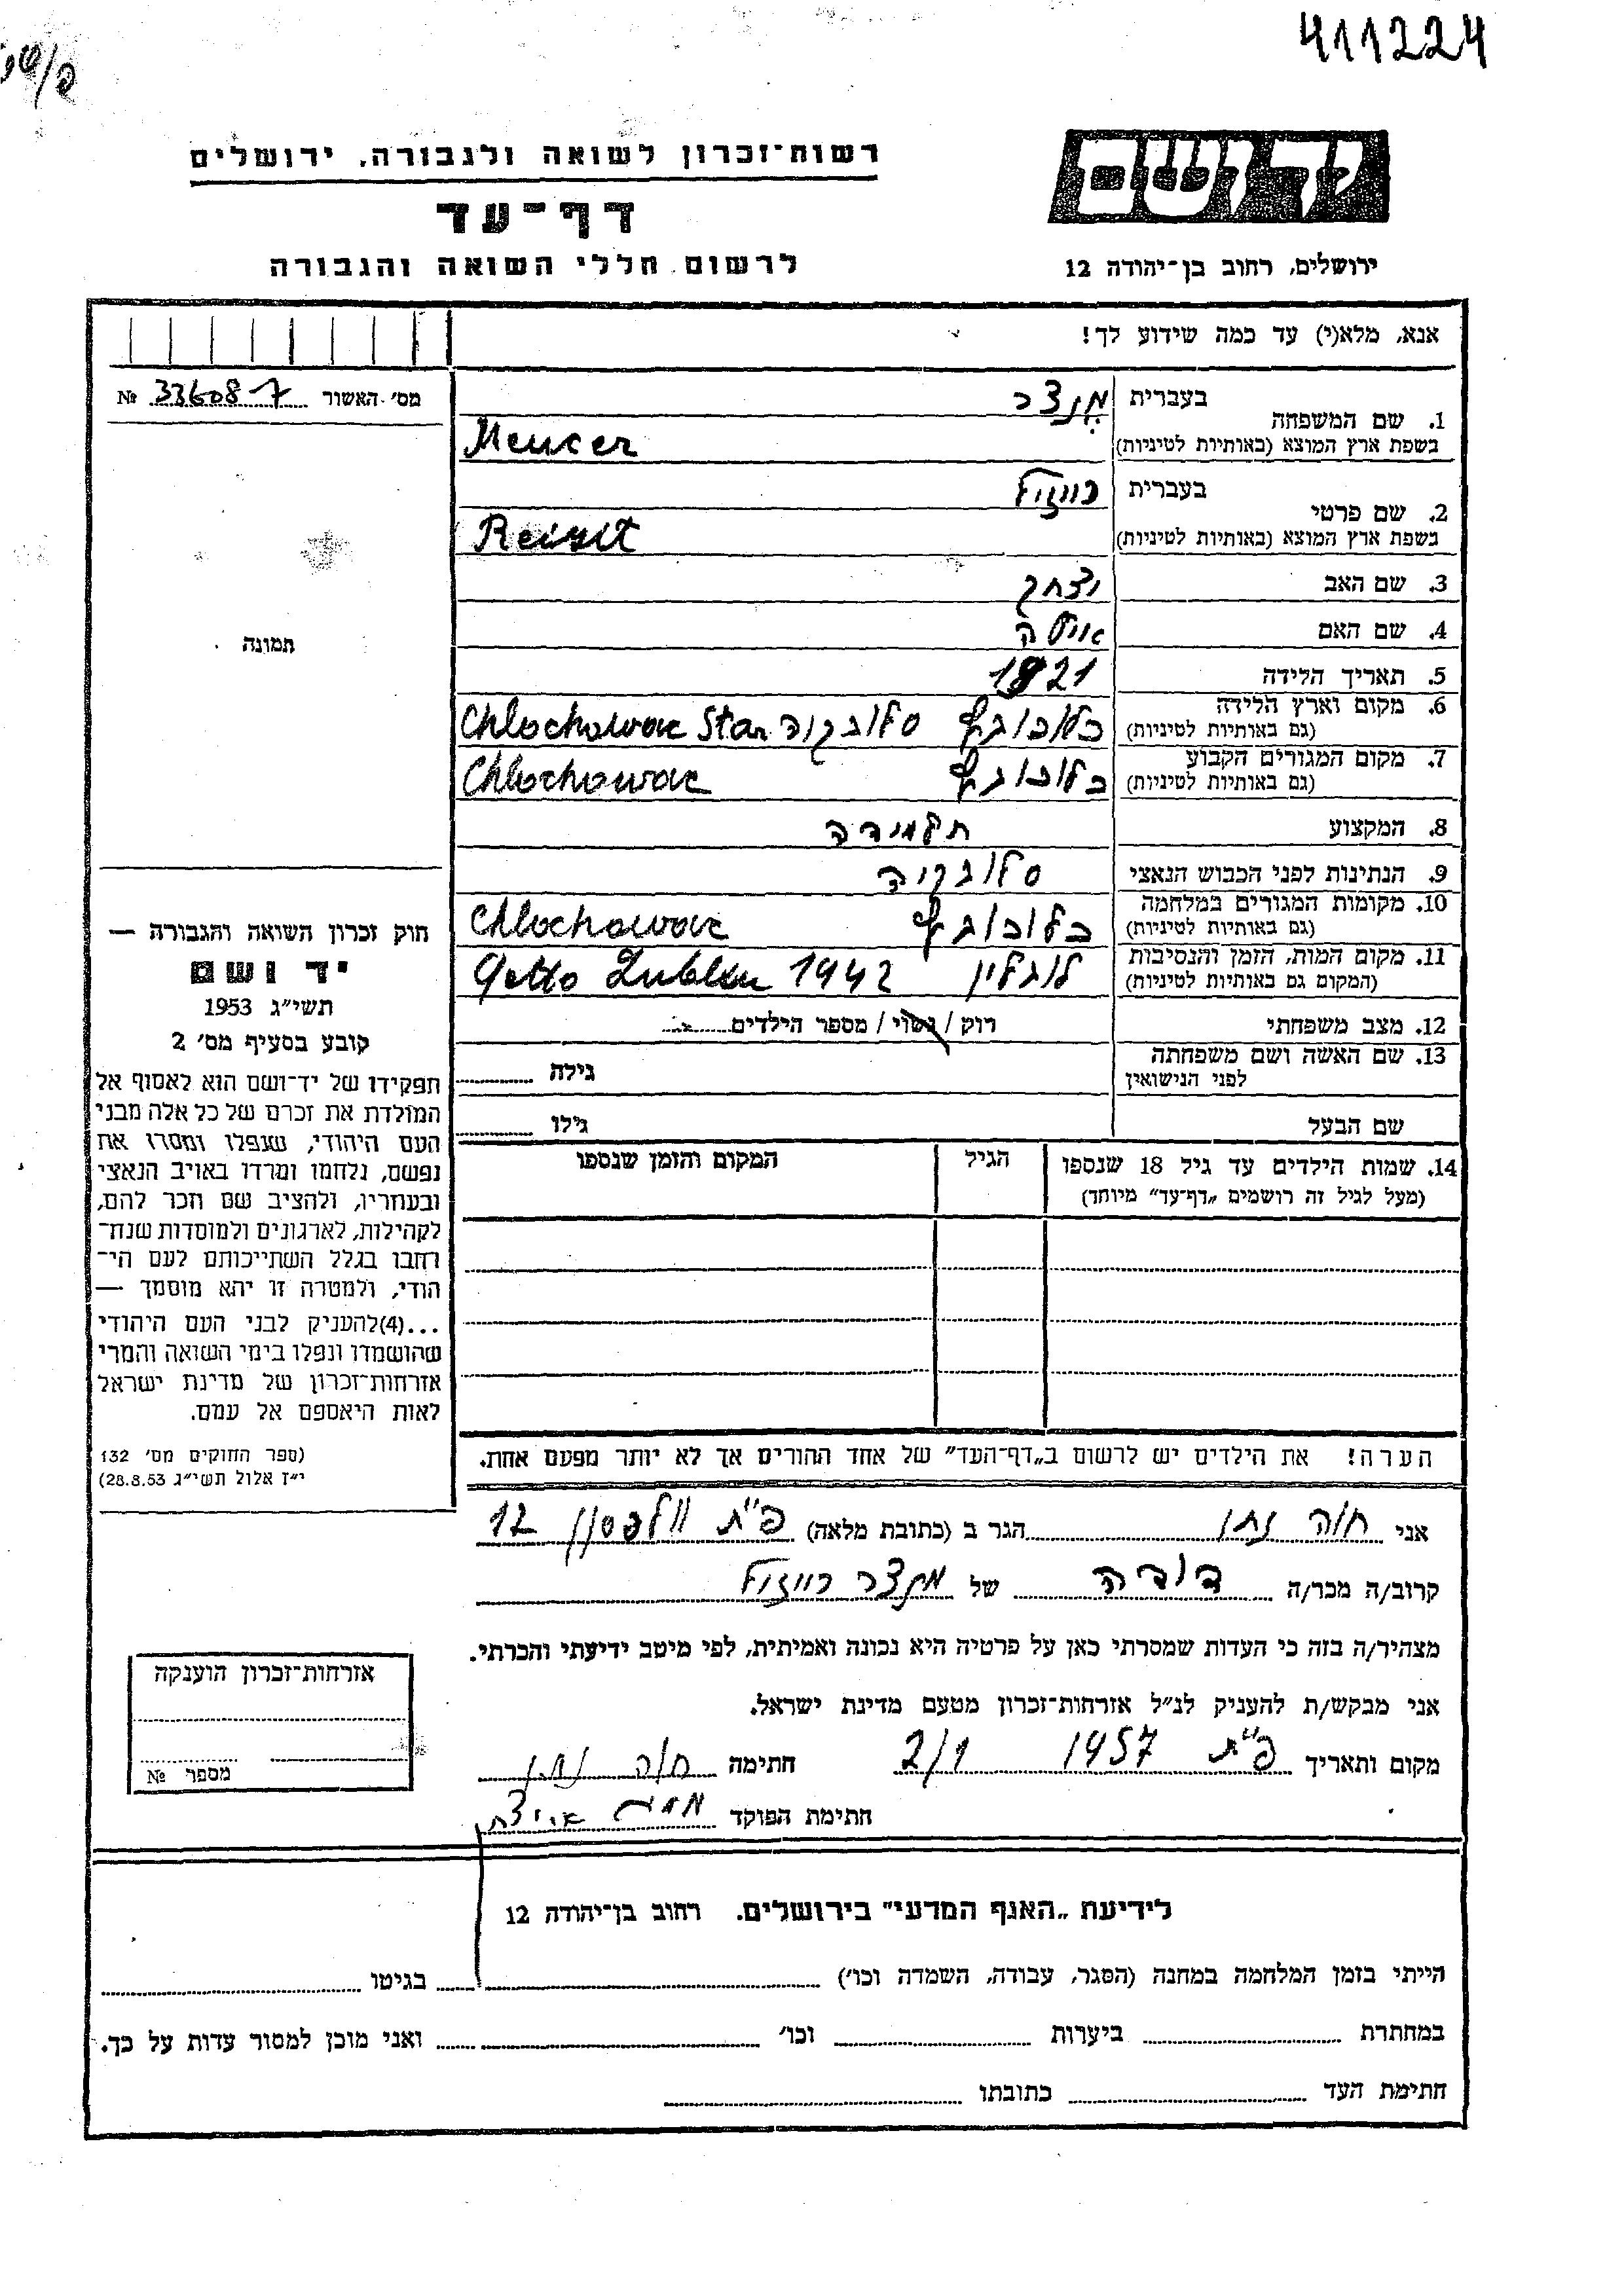 411224
רשות־זכרון לשואה ולגבורה, ירושלים
דף־עד
לרשום חללי השואה והגבורה
יד ושם
ירושלים, רחוב בן־יהודה 12
אנא, מלא(י) עד כמה שידוע לך!
מס׳ האשור № 336087
1. שם המשפחה בעברית מנצר
בשפת ארץ המוצא (באותיות לטיניות) Mencer
2. שם פרטי בעברית רייזיל
בשפת ארץ המוצא (באותיות לטיניות)
3. שם האב יצחק
4. שם האם
5. תאריך הלידה 1921
6. מקום וארץ הלידה
(גם באותיות לטיניות) סלובקיה Chlochowac Star
7. מקום המגורים הקבוע
(גם באותיות לטיניות) Chlochowac
8. המקצוע תלמידה
9. הנתינות לפני הכבוש הנאצי סלובקיה
10. מקומות המגורים במלחמה
(גם באותיות לטיניות) Chlochowac
11. מקום המות, הזמן והנסיבות
(המקום גם באותיות לטיניות) לובלין Getto Lublin 1942
12. מצב משפחתי רוק / נשוי / מספר הילדים
13. שם האשה ושם משפחתה
לפני הנישואין גילה
שם הבעל גילו
14. שמות הילדים עד גיל 18 שנספו הגיל המקום והזמן שנספו
(מעל לגיל זה רושמים „דף־עד״ מיוחד)
הערה! את הילדים יש לרשום ב„דף־העד״ של אחד ההורים אך לא יותר מפעם אחת.
תמונה
חוק זכרון השואה והגבורה —
יד ושם
תשי״ג 1953
קובע בסעיף מס׳ 2
תפקידו של יד־ושם הוא לאסוף אל
המולדת את זכרם של כל אלה מבני
העם היהודי, שנפלו ומסרו את
נפשם, נלחמו ומרדו באויב הנאצי
ובעוזריו, ולהציב שם וזכר להם,
לקהילות, לארגונים ולמוסדות שנח־
רבו בגלל השתייכותם לעם הי־
הודי, ולמטרה זו יהא מוסמך —
...(4)להעניק לבני העם היהודי
שהושמדו ונפלו בימי השואה והמרי
אזרחות־זכרון של מדינת ישראל
לאות היאספם אל עמם.
(ספר החוקים מס׳ 132
י״ז אלול תשי״ג 28.8.53)
אני חוה נתן הגר ב (כתובת מלאה) פ״ת וולפסון 12
קרוב/ה מכר/ה דודה של מנצר רייזיל
מצהיר/ה בזה כי העדות שמסרתי כאן על פרטיה היא נכונה ואמיתית, לפי מיטב ידיעתי והכרתי.
אני מבקש/ת להעניק לנ״ל אזרחות־זכרון מטעם מדינת ישראל.
מקום ותאריך פ״ת 1957 2/1 חתימה חוה נתן
חתימת הפוקד
אזרחות־זכרון הוענקה
מספר №
לידיעת „האגף המדעי״ בירושלים. רחוב בן־יהודה 12
הייתי בזמן המלחמה במחנה (הסגר, עבודה, השמדה וכו׳) בגיטו
במחתרת ביערות וכו׳ ואני מוכן למסור עדות על כך.
חתימת העד כתובתו